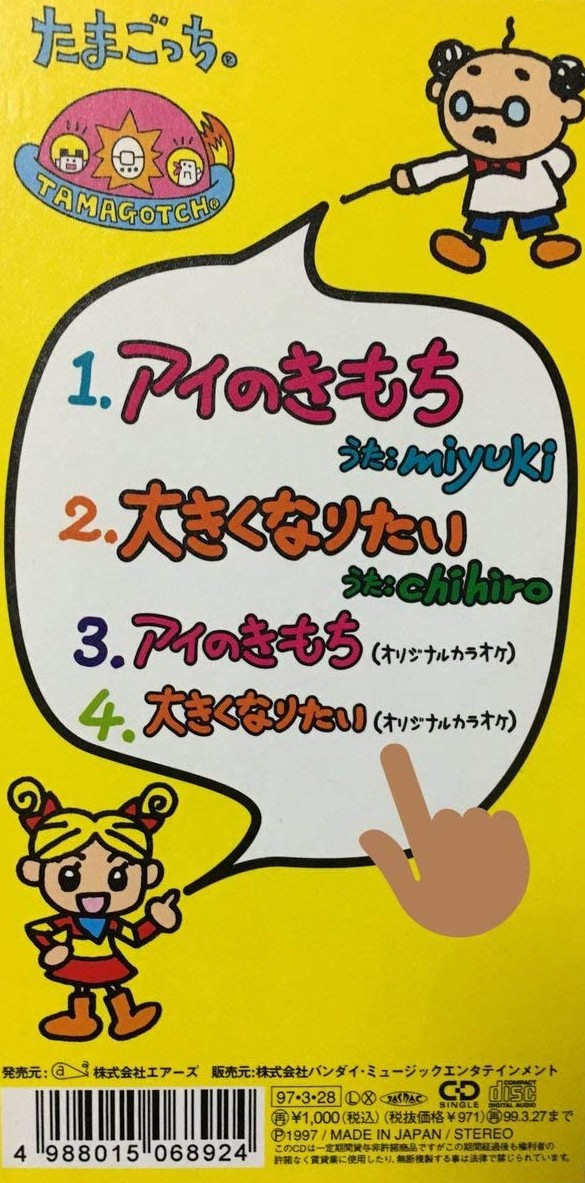 たまごっち®
TAMAGOTCH®
1.アイのきもち
うた:miyuki
2.大きくなりたい
うた:chihiro
3.アイのきもち(オリジナルカラオケ)
4.大きくなりたい(オリジナルカラオケ)
発売元: 株式会社エアーズ 販売元:株式会社バンダイ・ミュージックエンタテインメント
97・3・28 LX JASRAC CD SINGLE COMPACT disc DIGITAL AUDIO
再¥1,000(税込)(税抜価格¥971)再99.3.27まで
Ⓟ1997/MADE IN JAPAN/STEREO
このCDは一定期間貸与非許諾商品ですがこの期間経過後も権利者の
許諾なく賃貸業に使用したり、無断複製する事は法律で禁じられています。
4 988015 068924